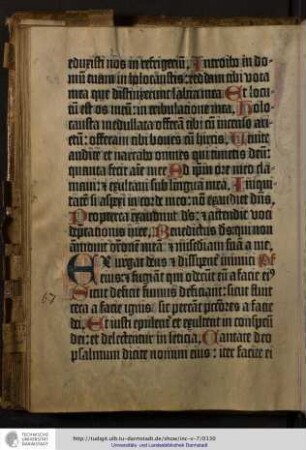 eduxisti nos in refrigeriū. Introibo in do-
mum tuam in holocaustis: reddam tibi vota
mea que distinxerunt labia mea. Et locu-
tū est os meū: in tribulatione mea. Holo-
causta medullata offerā tibi cū incenso arie-
tū: offeram tibi boves cū hircis. Venite
audite et narrabo omnes qui timetis deū:
quanta fecit aīe mee. Ad ipm ore meo cla-
maui: et exaltaui sub lingua mea. Iniqui-
tatē si aspexi in corde meo: nō exaudiet dn̄s.
Propterea exaudiuit ds: et attendit voci
dep̄cationis mee. Benedictus ds qui non
amouit orōnē meā et misedīam suā a me.
Exurgat deus et dissipent inimici
eius: et fugiant qui oderūt eū a facie eiꝰ
Sicut deficit fumus deficiant: sicut fluit
cera a facie ignis sic pereāt pctōres a facie
dei. Et iusti epulent et exultent in conspcū
dei: et delectentur in leticia. Cantate deo
psalmum dicite nomini eius: iter facite ei
67
TECHNISCHE
UNIVERSITÄT
DARMSTADT
http://tudigit.ulb.tu-darmstadt.de/show/inc-v-7/0120
Universitäts- und Landesbibliothek Darmstadt